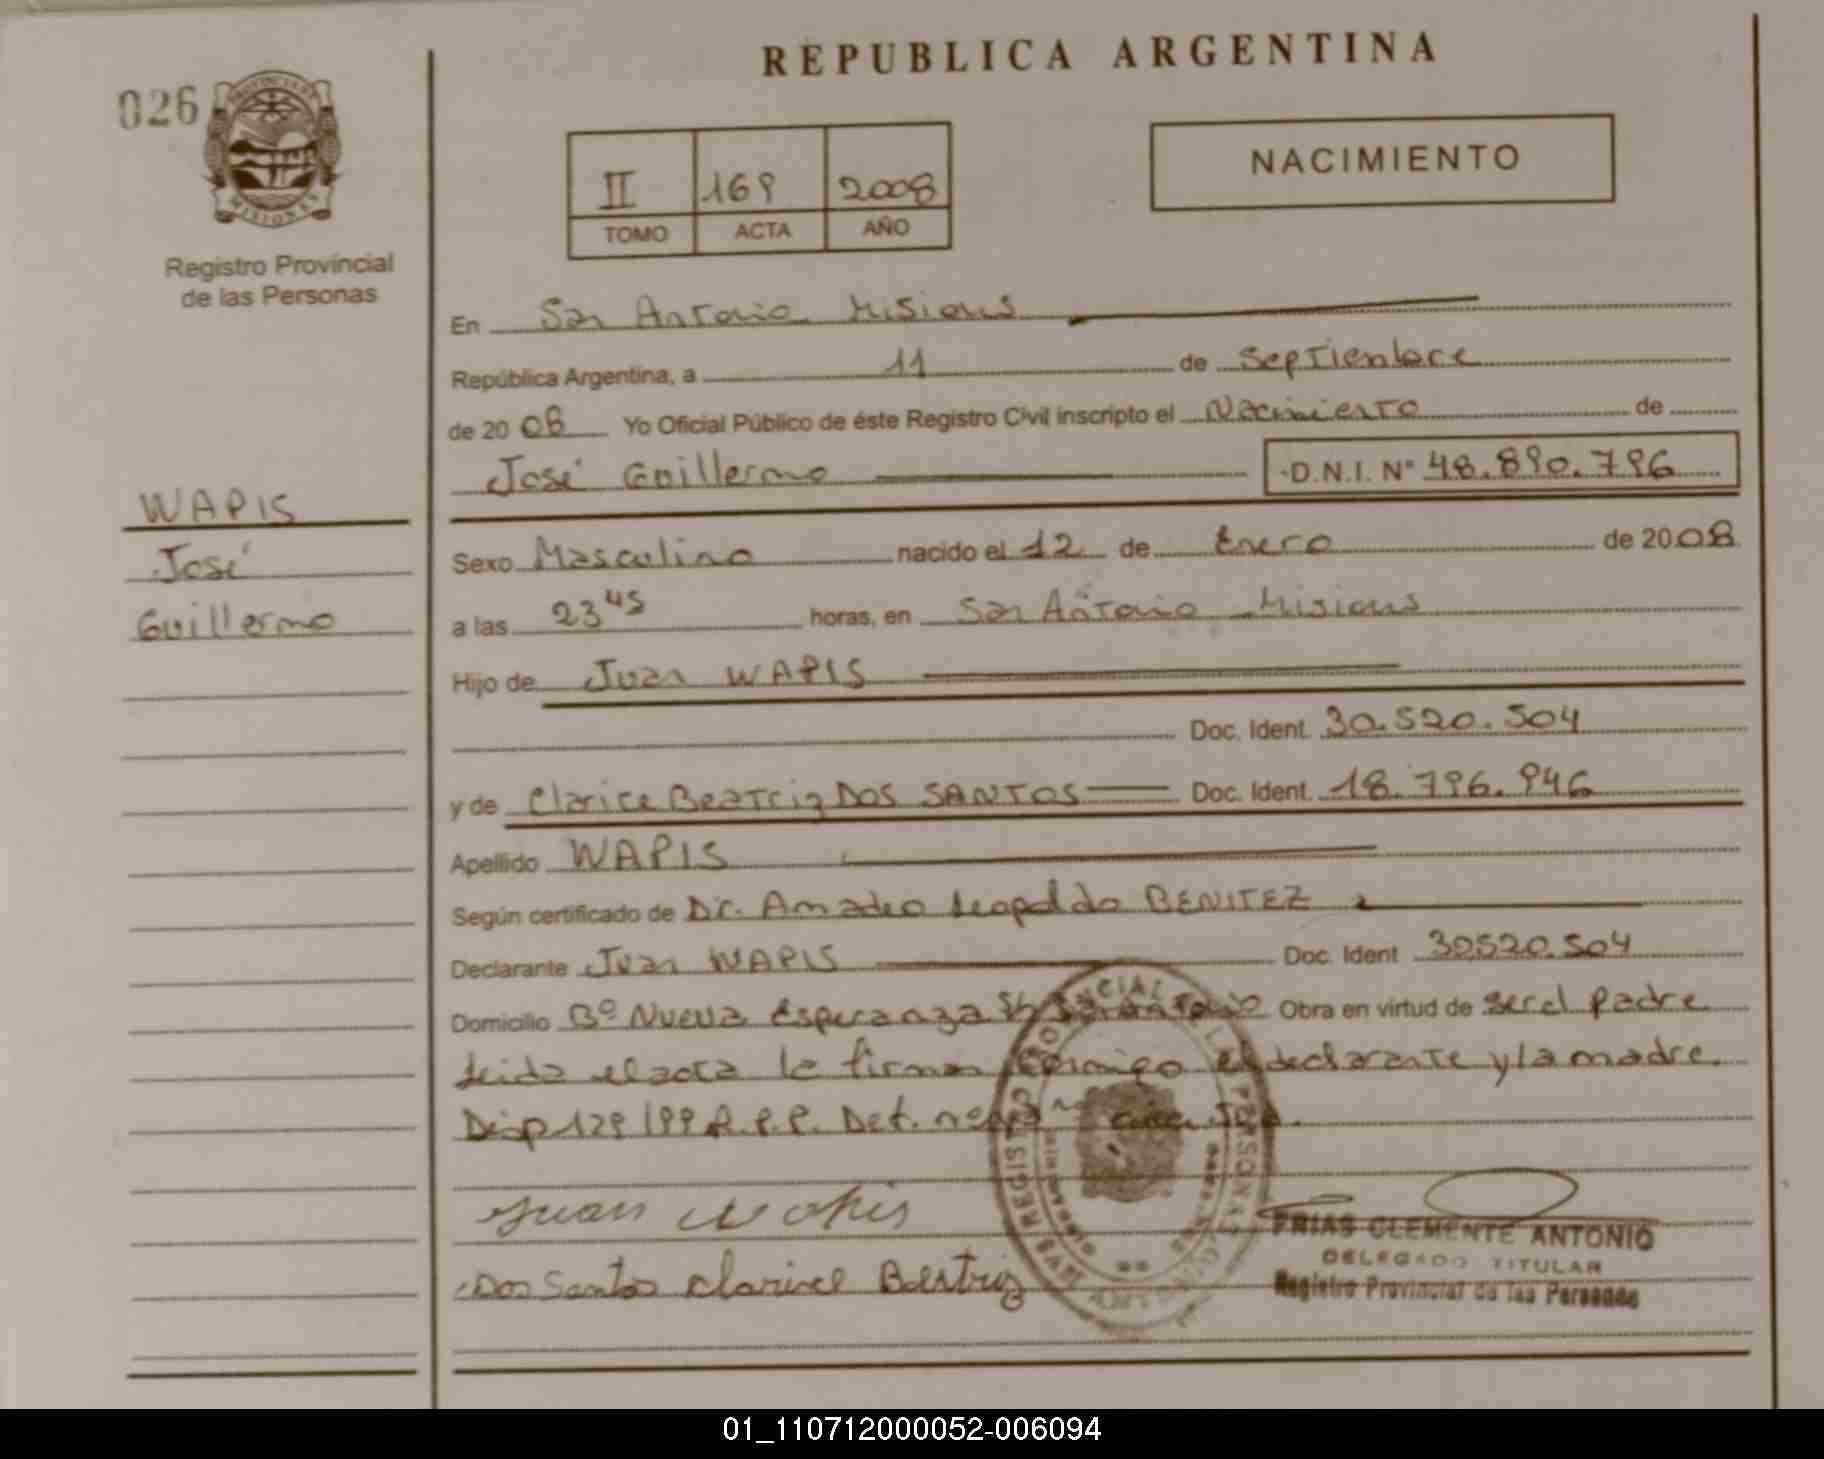 REPUBLICA ARGENTINA
026
PROVINCIA DE
MISIONES
Registro Provincial
de las Personas
II 169 2008
TOMO ACTA AÑO
NACIMIENTO
En San Antonio Misiones
República Argentina, a 11 de Septiembre
de 2008 Yo Oficial Público de éste Registro Civil inscripto el Nacimiento de
José Guillermo D.N.I. Nº 48.890.796
WAPIS
José
Guillermo
Sexo Masculino nacido el 12 de Enero de 2008
a las 23 45 horas, en San Antonio Misiones
Hijo de Juan WAPIS
Doc. Ident. 30.520.504
y de Clarice Beatriz DOS SANTOS Doc. Ident. 18.796.946
Apellido WAPIS
Según certificado de Dr. Amadeo Leopoldo BENITEZ
Declarante Juan WAPIS Doc. Ident 30520.504
Domicilio Bº Nueva Esperanza San Antonio Obra en virtud de ser el padre
Leida el acta la firman conmigo el declarante y la madre.
Disp 129/99 R.P.P. Det.
Juan Wapis
Dos Santos Clarice Beatriz
FRIAS CLEMENTE ANTONIO
DELEGADO TITULAR
Registro Provincial de las Personas
REGISTRO PROVINCIAL DE LAS PERSONAS
01_110712000052-006094